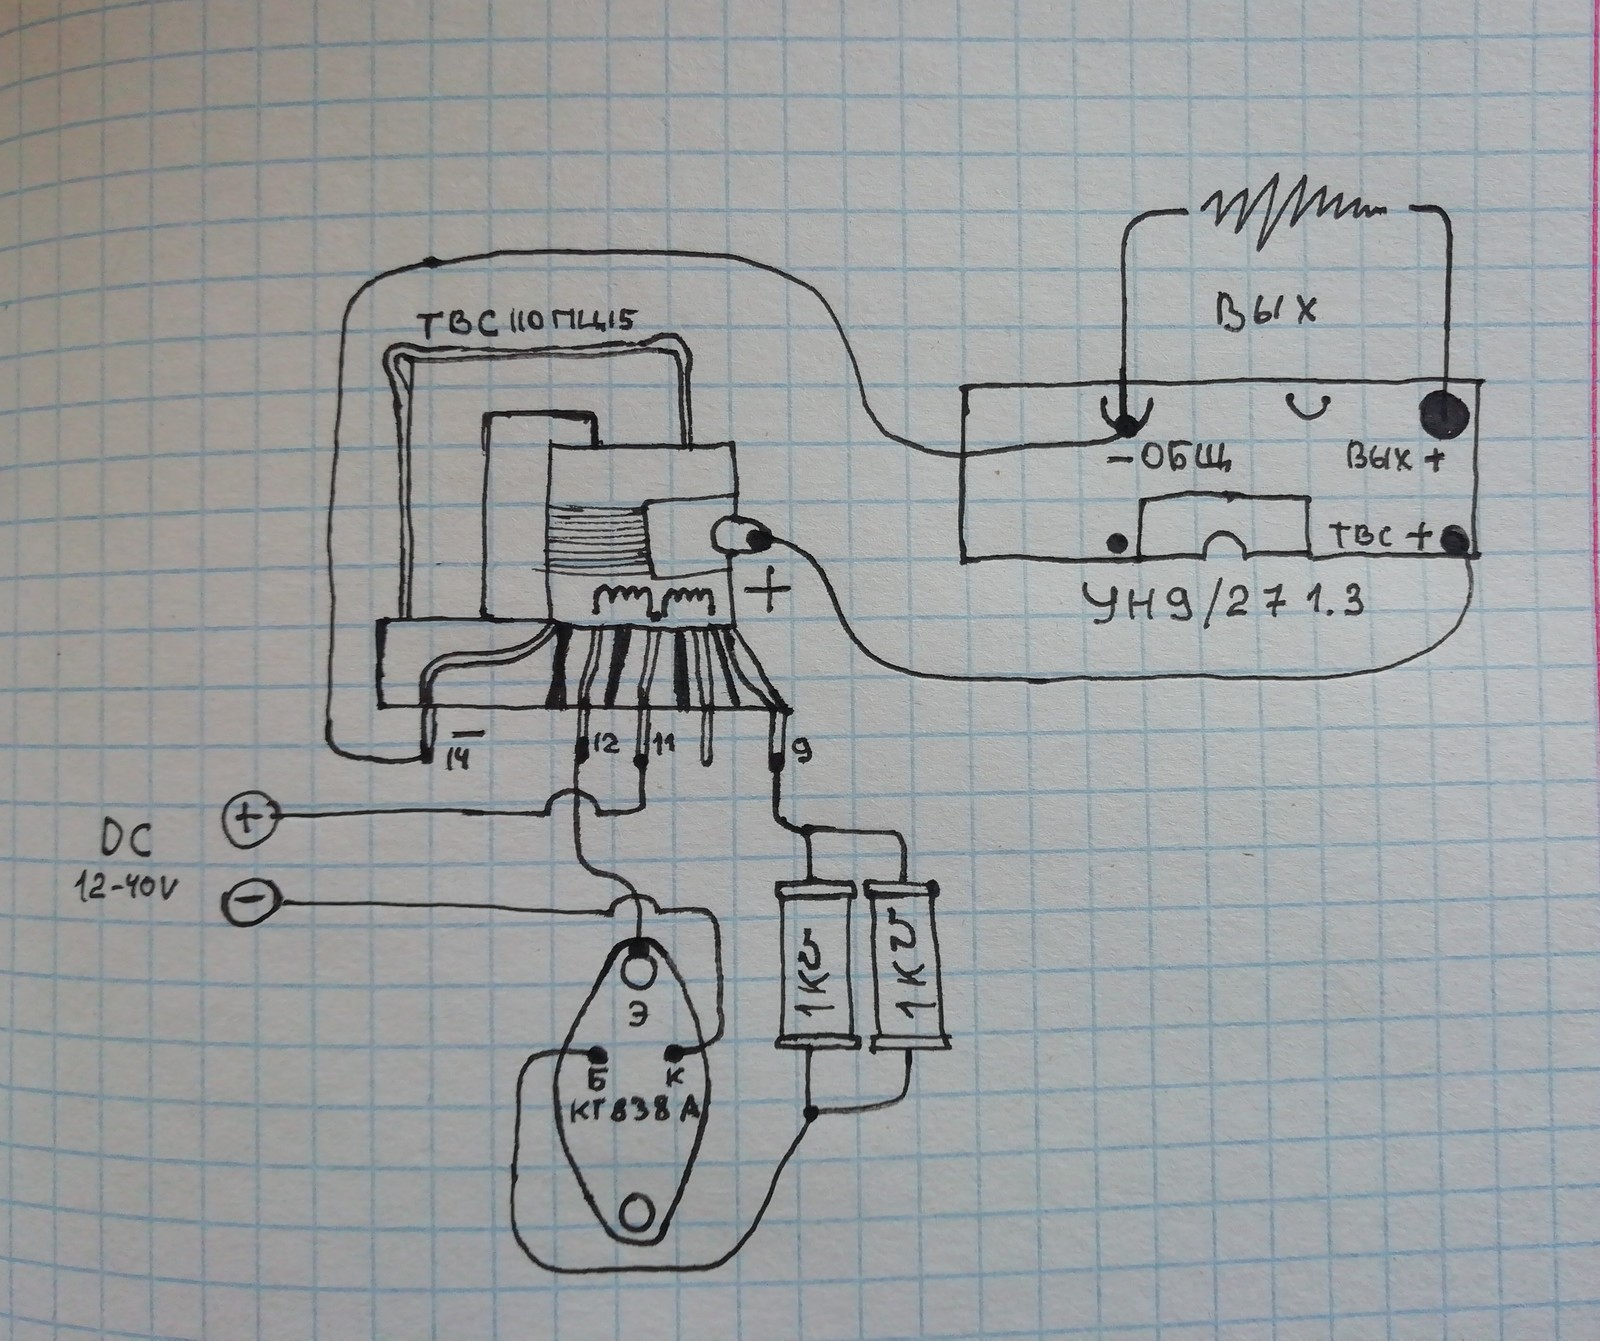 ТВС 110 ПЦ15
ВЫХ
-ОБЩ
ВЫХ +
ТВС +
УН9/27 1.3
+
14 -
12
11
9
DC
12-40V
+
-
1К
1К
Э
Б
К
КТ838А